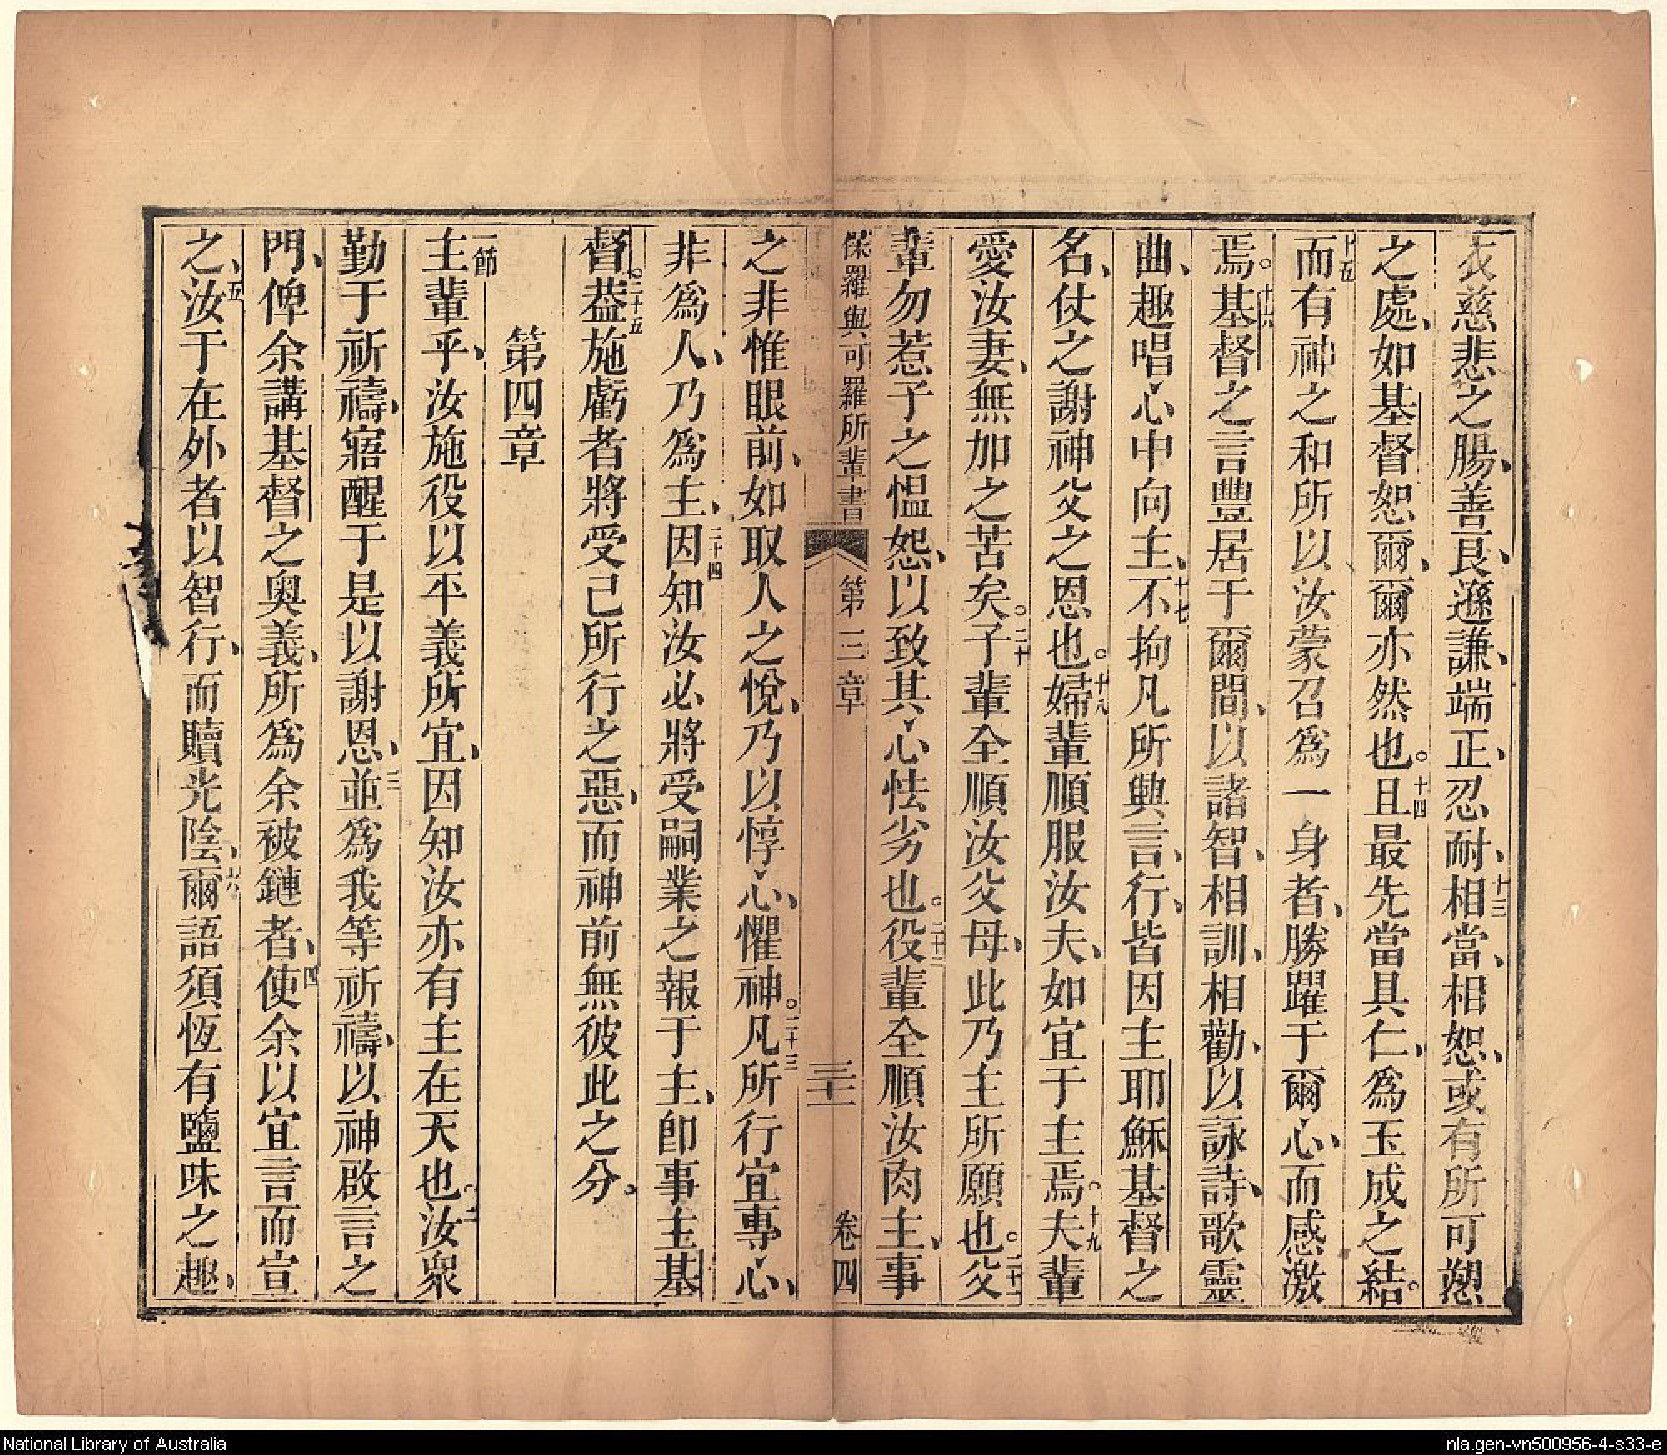 衣慈悲之腸、善良、遜謙、端正、忍耐、十三相當、相恕、或有所可愬
之處、如基督恕爾、爾亦然也。十四且最先當具仁、爲玉成之結。
十五而有神之和所以汝蒙召爲一身者、勝躍于爾心、而感激
焉。十六基督之言豐居于爾間、以諸智、相訓、相勸、以詠詩、歌靈
曲、趣唱心中向主、十七不拘凡所與言、行、皆因主耶穌基督之
名、仗之謝神父之恩也。十八婦輩順服汝夫、如宜于主焉。十九夫輩
愛汝妻、無加之苦矣。二十子輩全順汝父母、此乃主所願也。二十一父
輩勿惹子之愠怨、以致其心怯劣也。二十二役輩全順汝肉主、事
保羅與可羅所輩書 第三章 三十二 卷四
之非惟眼前、如取人之悅、乃以惇心、懼神。二十三凡所行宜專心、
非爲人、乃爲主、二十四因知汝必將受嗣業之報于主、卽事主基
督。二十五葢施虧者將受己所行之惡、而神前無彼此之分。
第四章
一節主輩乎、汝施役以平義所宜、因知汝亦有主在天也。二汝衆
勤于祈禱、寤醒于是以謝恩、三並爲我等祈禱、以神啟言之
門、俾余講基督之奧義、所爲余被鏈者、四使余以宜言而宣
之、五汝于在外者以智行、而贖光陰、六爾語須恆有鹽味之趣、
National Library of Australia
nla.gen-vn500956-4-s33-e